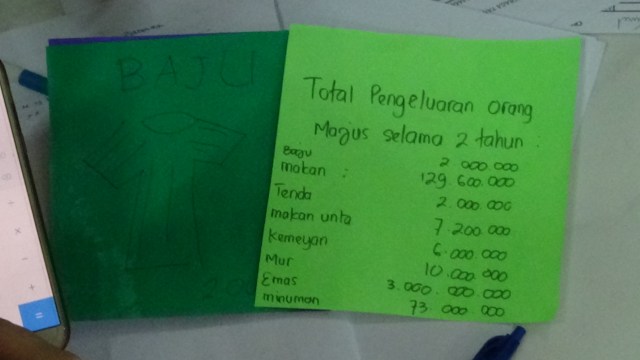 BAJU
Total Pengeluaran orang
Majus selama 2 tahun :
Baju 2.000.000
makan : 129.600.000
Tenda 2.000.000
makan unta 7.200.000
Kemeyan 6.000.000
Mur 10.000.000
Emas 3.000.000.000
minuman 73.000.000